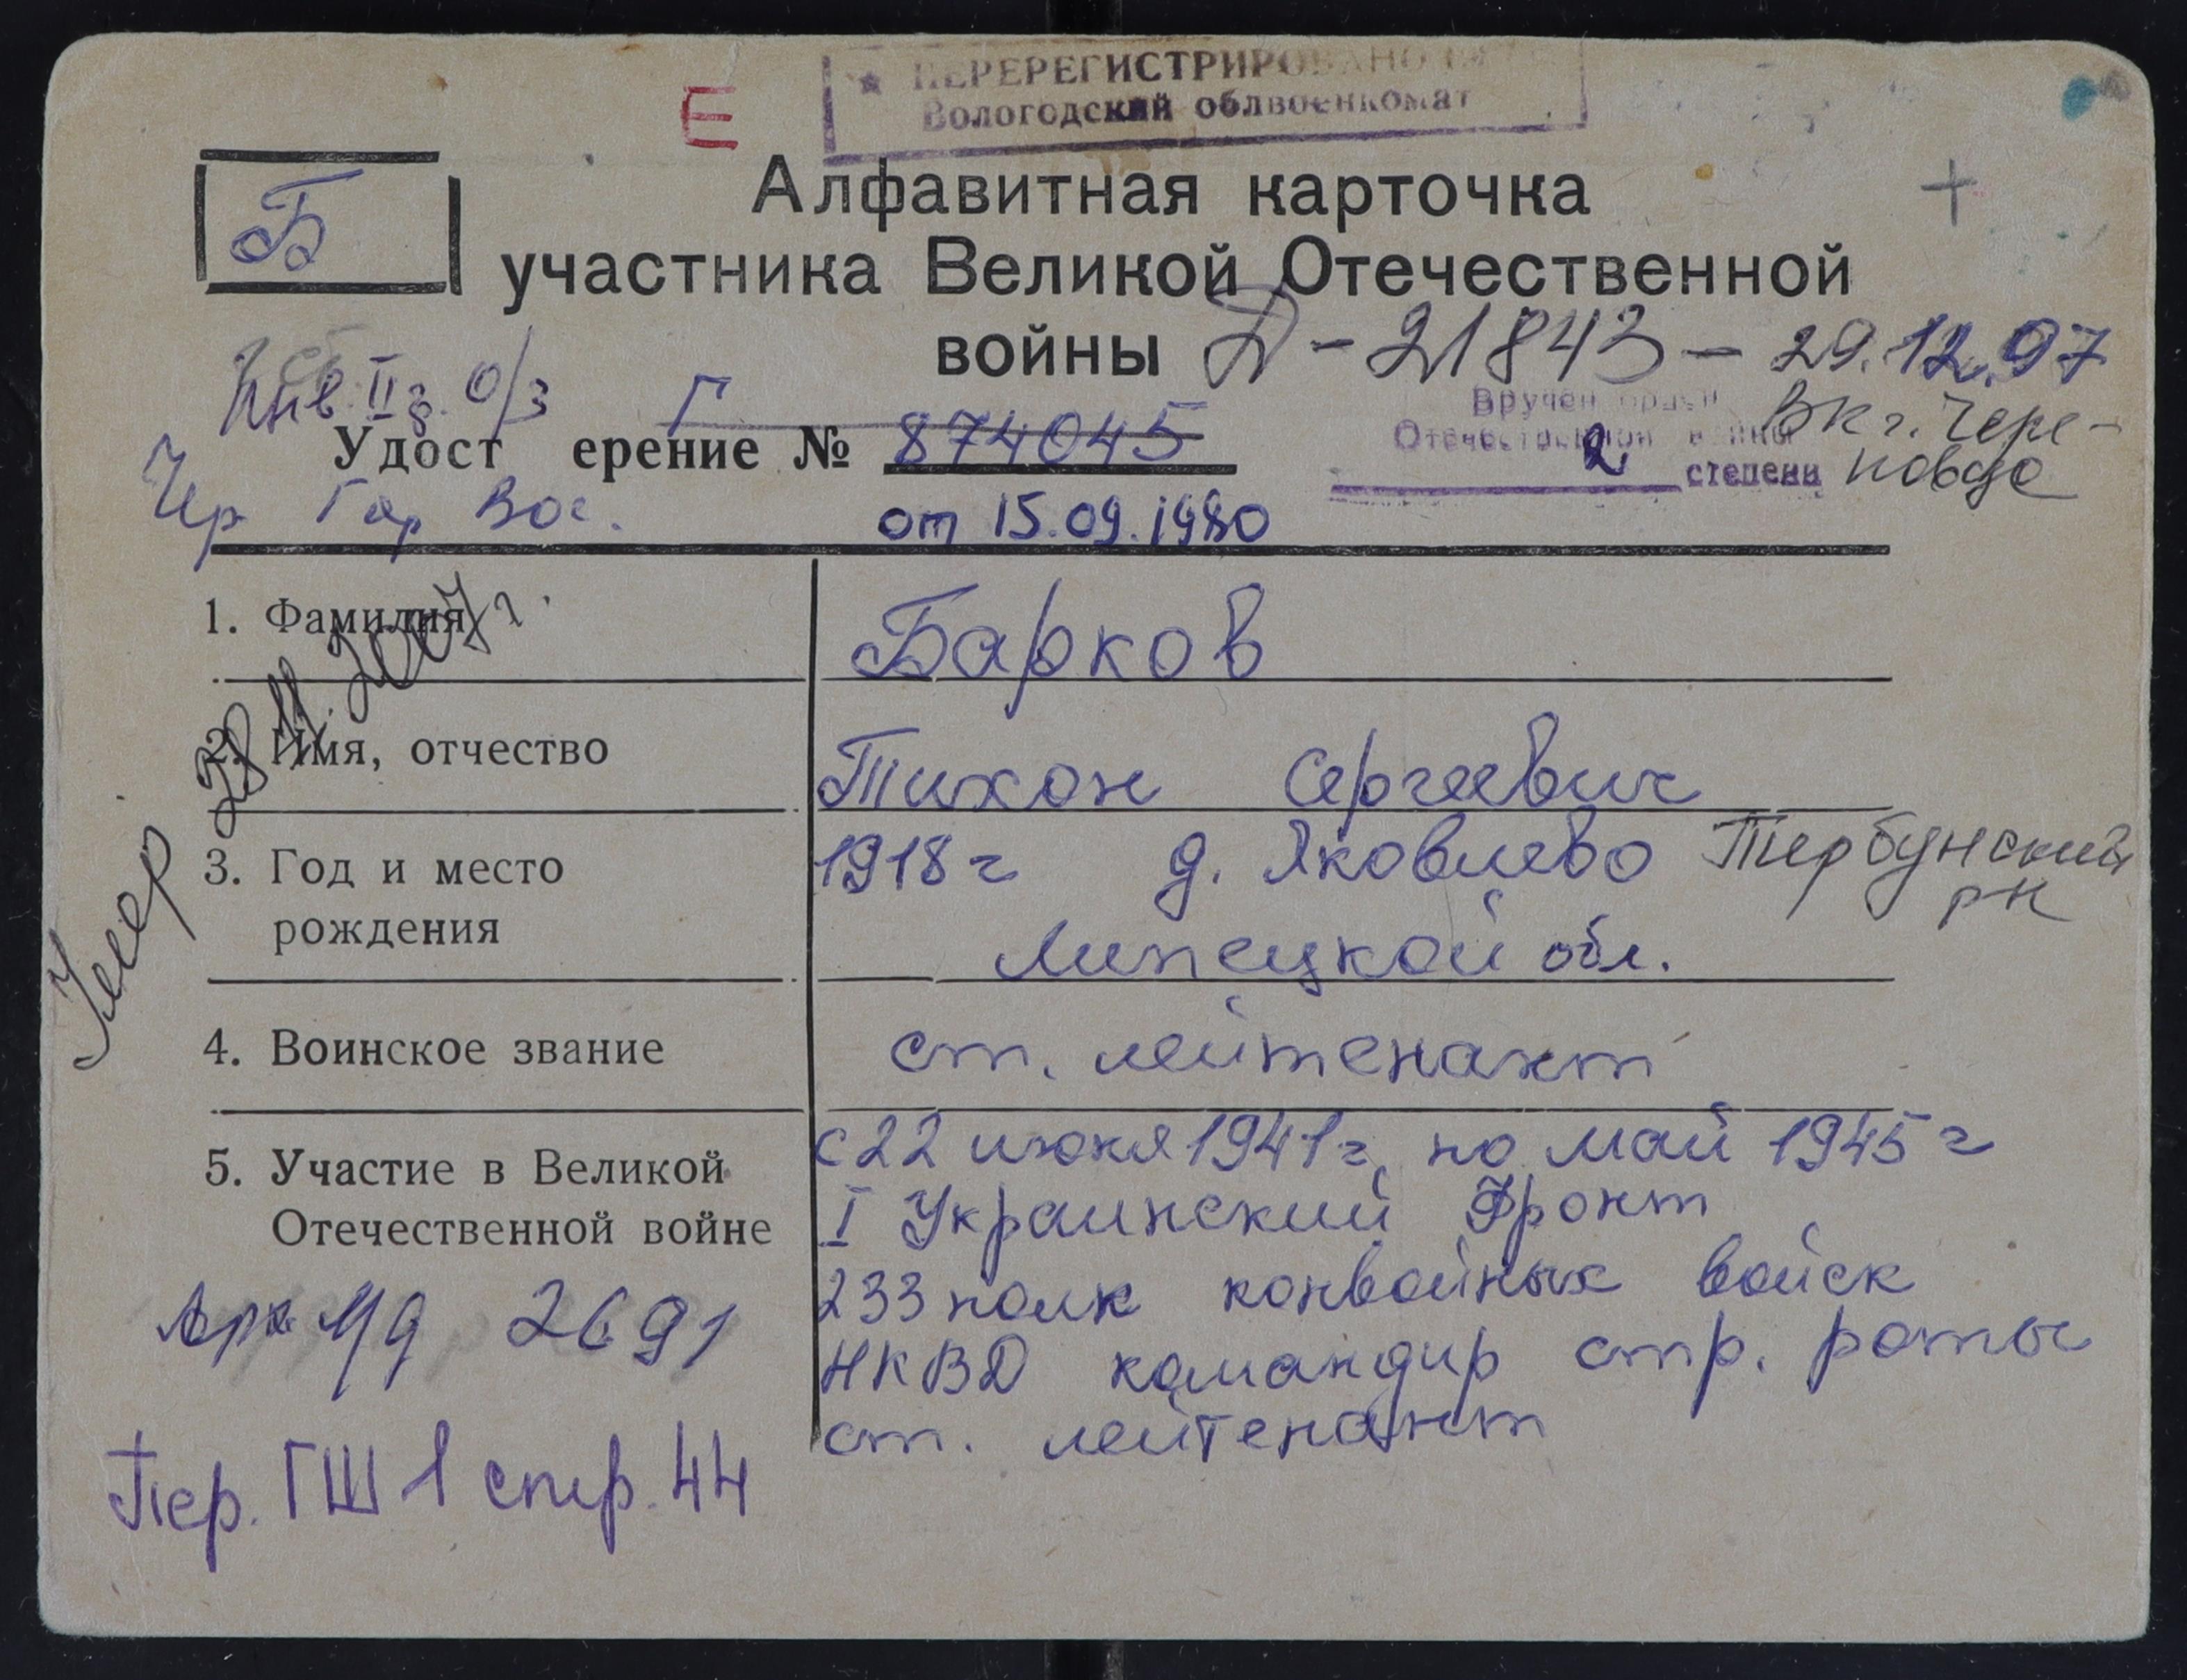 ПЕРЕРЕГИСТРИРОВАНО
Вологодский облвоенкомат
Е
Б
Алфавитная карточка
участника Великой Отечественной
войны Д-21843 - 29.12.97
Инв. II г. О/З
Г
Вручен орден
Отечественной войны
2 степени
ВК г. Чере-
повца
Удост ерение № 874045
Чер Гор Вое.
от 15.09.1980
1. Фамилия
Барков
2. Имя, отчество
Тихон Сергеевич
3. Год и место
рождения
1918 г д. Яковлево Тербунский
рн
Липецкой обл.
Умер 28.11.2007 г.
4. Воинское звание
ст. лейтенант
5. Участие в Великой
Отечественной войне
с 22 июня 1941 г. по май 1945 г
I Украинский Фронт
233 полк конвойных войск
НКВД командир стр. роты
ст. лейтенант
2691
Пер. ГШ 1 стр. 44